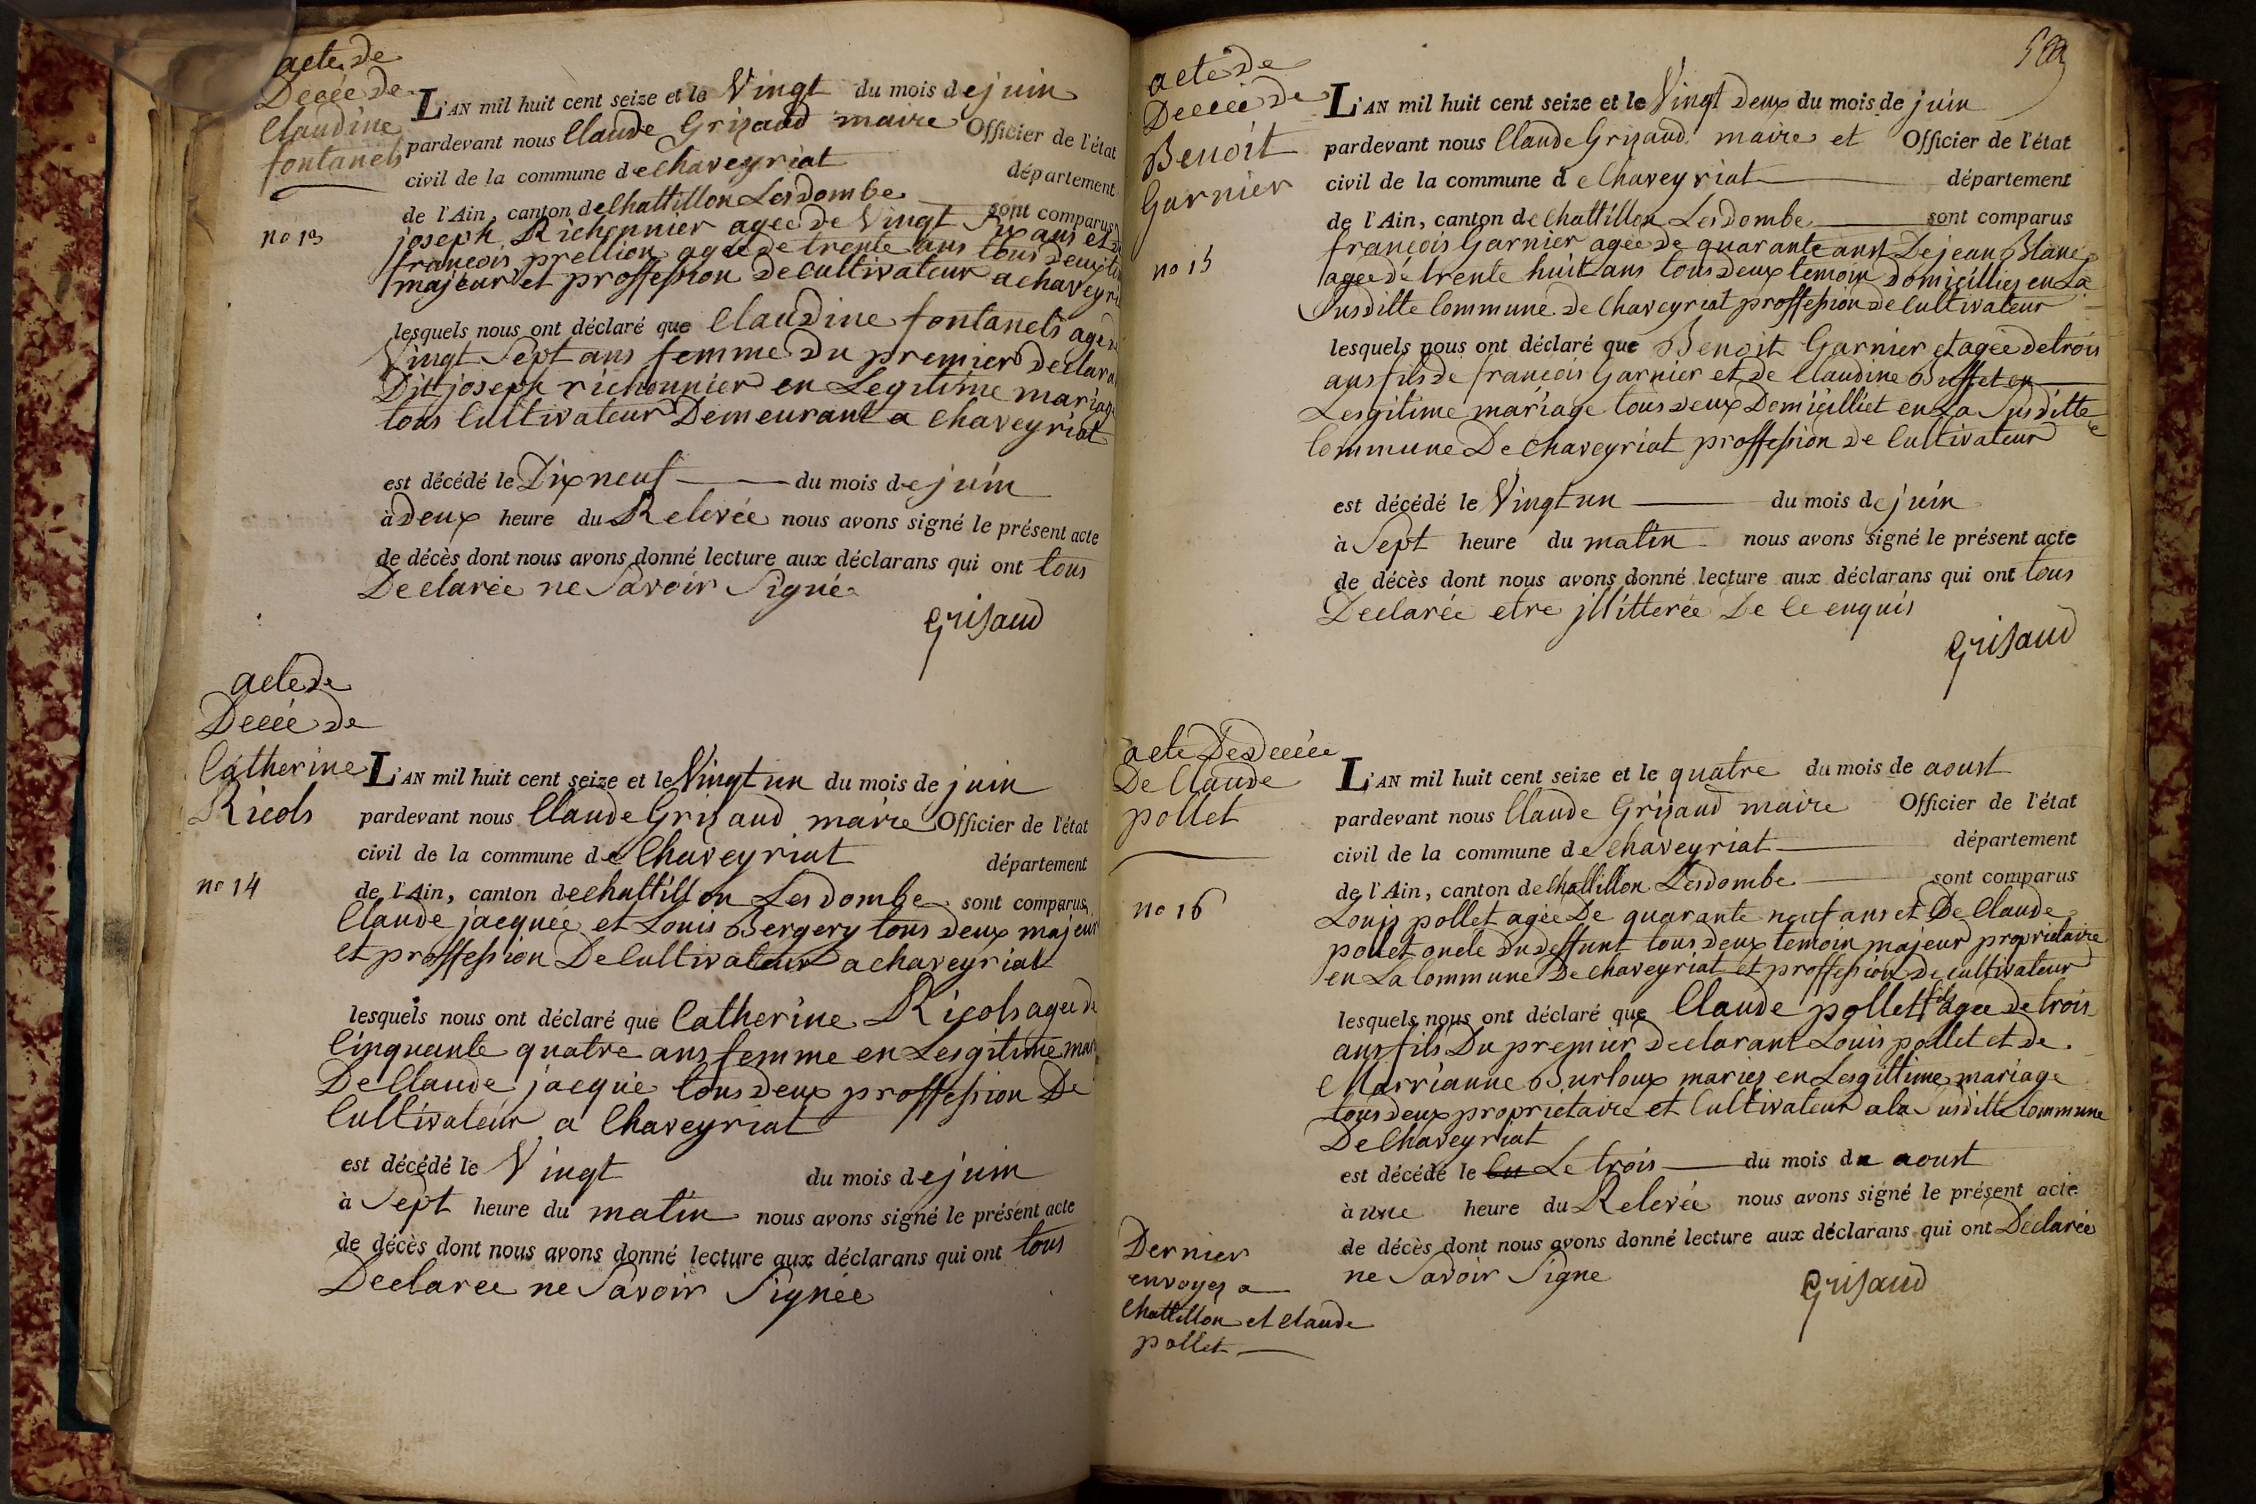 acte de
Décée de
Claudine
fontanels
no 13
L'AN mil huit cent seize et le Vingt du mois de juin
pardevant nous Claude Grisaud maire Officier de l'état
civil de la commune de Chaveyriat département
de l'Ain, canton de Chattillon Lesdombe sont comparus
joseph Richonnier agee de Vingt Six ans et
francois prellion agée de trente ans tous deux
majeur et proffession de Cultivateur a chaveyri
lesquels nous ont déclaré que Claudine fontanels agee
Vingt Sept ans femme du premier declara
Dit joseph richonnier en Legitime mariage
tous Cultivateur Demeurant a Chaveyriat
est décédé le Dix neuf du mois de juin
à Deux heure du Relevée nous avons signé le présent acte
de décès dont nous avons donné lecture aux déclarans qui ont tous
Declarée ne Savoir Signé
Grisaud
acte de
Decée de
Catherine
Ricols
no 14
L'AN mil huit cent seize et le Vingt un du mois de juin
pardevant nous Claude Grisaud maire Officier de l'état
civil de la commune de Chaveyriat département
de l'Ain, canton de chattillon Lesdombe sont comparus
Claude jacquée et Louis Bergery tous deux majeur
et proffession De Cultivateur a chaveyriat
lesquels nous ont déclaré que Catherine Ricols agee de
Cinquante quatre ans femme en Lesgitime mar
De Claude jacquie tous deux proffession De
Cultivateur a Chaveyriat
est décédé le Vingt du mois de juin
à Sept heure du matin nous avons signé le présent acte
de décès dont nous avons donné lecture aux déclarans qui ont tous
Declaree ne Savoir Signée
acte de
Decée de
Benoit
Garnier
no 15
L'AN mil huit cent seize et le Vingt Deux du mois de juin
pardevant nous Claude Grisaud maire et Officier de l'état
civil de la commune de Chaveyriat département
de l'Ain, canton de Chattillon Lesdombe sont comparus
francois Garnier agée de quarante ans De jean Blanc
agee de trente huit ans tous deux temoin domicilliez en La
Susditte Commune de Chaveyriat proffession de Cultivateur
lesquels nous ont déclaré que Benoit Garnier et agée de trois
ans fils de francois Garnier et de Claudine Buffet en
Lesgitime mariage tous deux Domicilliet en La Susditte
Commune De Chaveyriat proffession de Cultivateur
est décédé le Vingt un du mois de juin
à Sept heure du matin nous avons signé le présent acte
de décès dont nous avons donné lecture aux déclarans qui ont tous
Declarée etre jllitterée De Ce enquis
Grisaud
acte De Decée
De Claude
pollet
no 16
L'AN mil huit cent seize et le quatre du mois de aoust
pardevant nous Claude Grisaud maire Officier de l'état
civil de la commune de Chaveyriat département
de l'Ain, canton de Chattillon Lesdombe sont comparus
Louis pollet agée De quarante neuf ans et De Claude
pollet oncle du deffunt tous deux temoin majeur proprietaire
en La Commune De Chaveyriat et proffession de cultivateur
lesquels nous ont déclaré que Claude pollet fils agee de trois
ans fils Du premier declarant Louis pollet et de
Marrianne Burloux mariez en Lesgittime mariage
tous deux proprietaire et Cultivateur a la Susditte Commune
De Chaveyriat
est décédé le Le trois du mois de aoust
à une heure du Relevée nous avons signé le présent acte
de décès dont nous avons donné lecture aux déclarans qui ont Declarée
ne Savoir Signe
Grisaud
Dernier
envoyez a
Chattillon et Claude
pollet